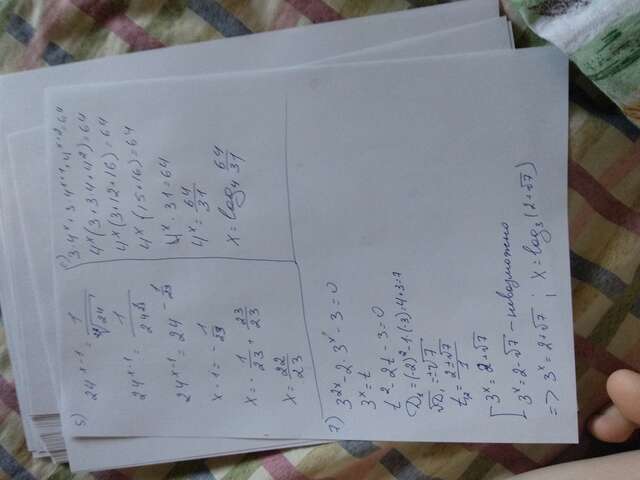 5)
24^(x-1) = 1/²³√24
24^(x-1) = 1/24^(1/23)
24^(x-1) = 24^(-1/23)
x-1 = -1/23
x = -1/23 + 23/23
x = 22/23
3·4^x + 3·4^(x+1) + 4^(x+2) = 64
4^x (3+3·4+4²) = 64
4^x (3+12+16) = 64
4^x (15+16) = 64
4^x · 31 = 64
4^x = 64/31
x = log₄ 64/31
7)
3^(2x) - 2·3^x - 3 = 0
3^x = t
t² - 2t - 3 = 0
D₁ = (-2)² - 1·(-3) = 4+3 = 7
√D₁ = ±√7
t₁₂ = (2±√7)/1
3^x = 2+√7
3^x = 2-√7 - невозможно
=> 3^x = 2+√7 ; x = log₃(2+√7)